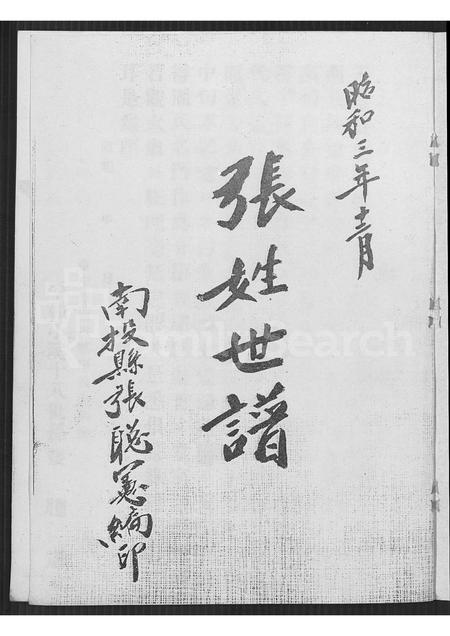 昭和三年十二月
張姓世譜
南投縣張聡憲編印
FamilySearch